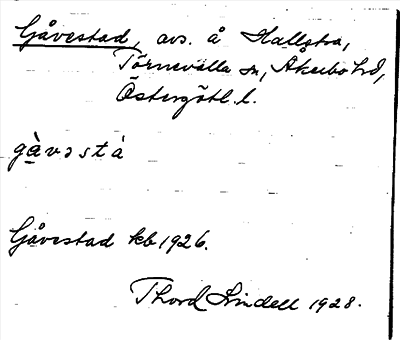 Gåvestad, avs. å Hallstra,
Törnevalla sn, Åkerbo hd,
Östergötl. l.
gàvəstà
Gåvestad kb 1926.
Thord Lindell 1928.